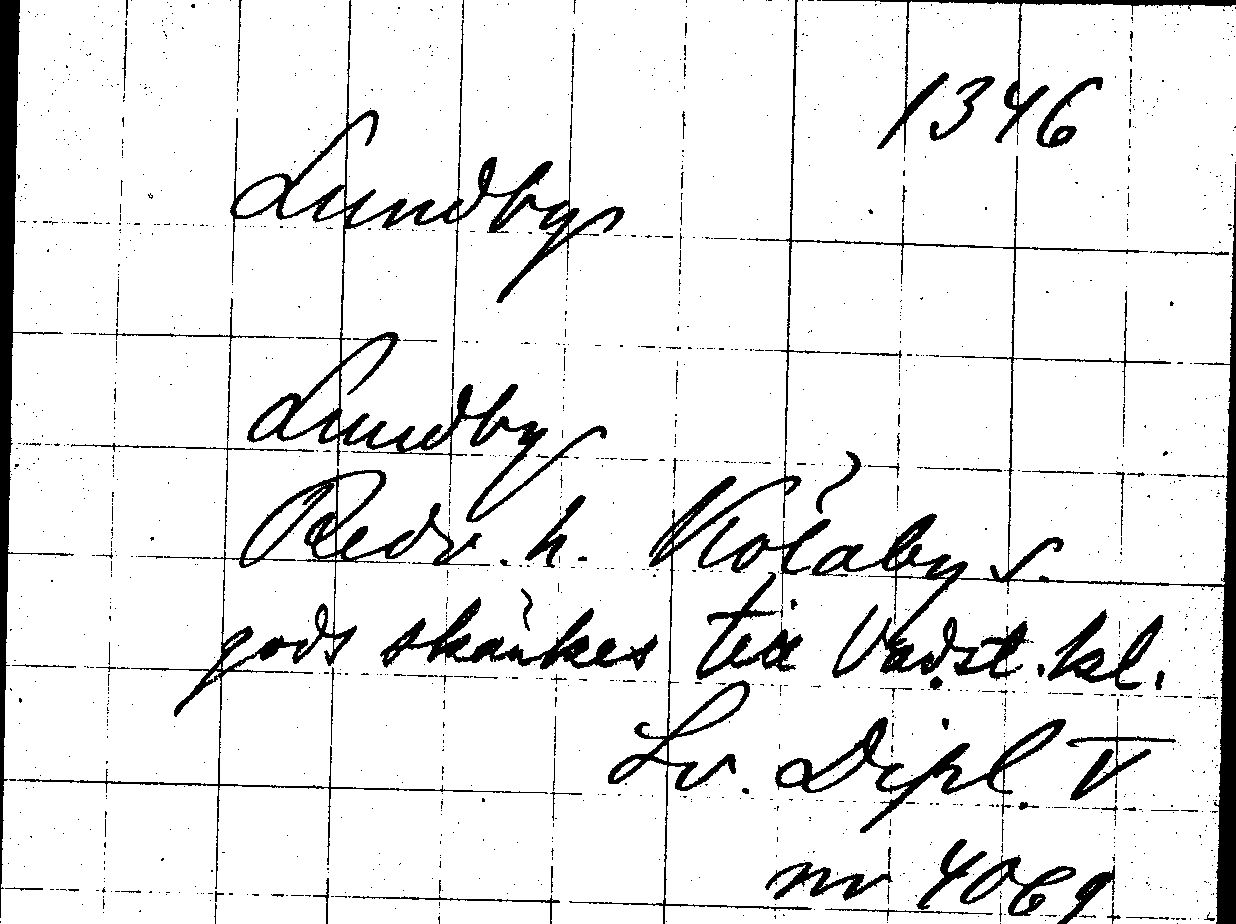 1346
Lundby
Lundby
Redv. h. Kölaby s.
gods skänkes till Vadst. kl.
Sv. Dipl. V
nr 4069